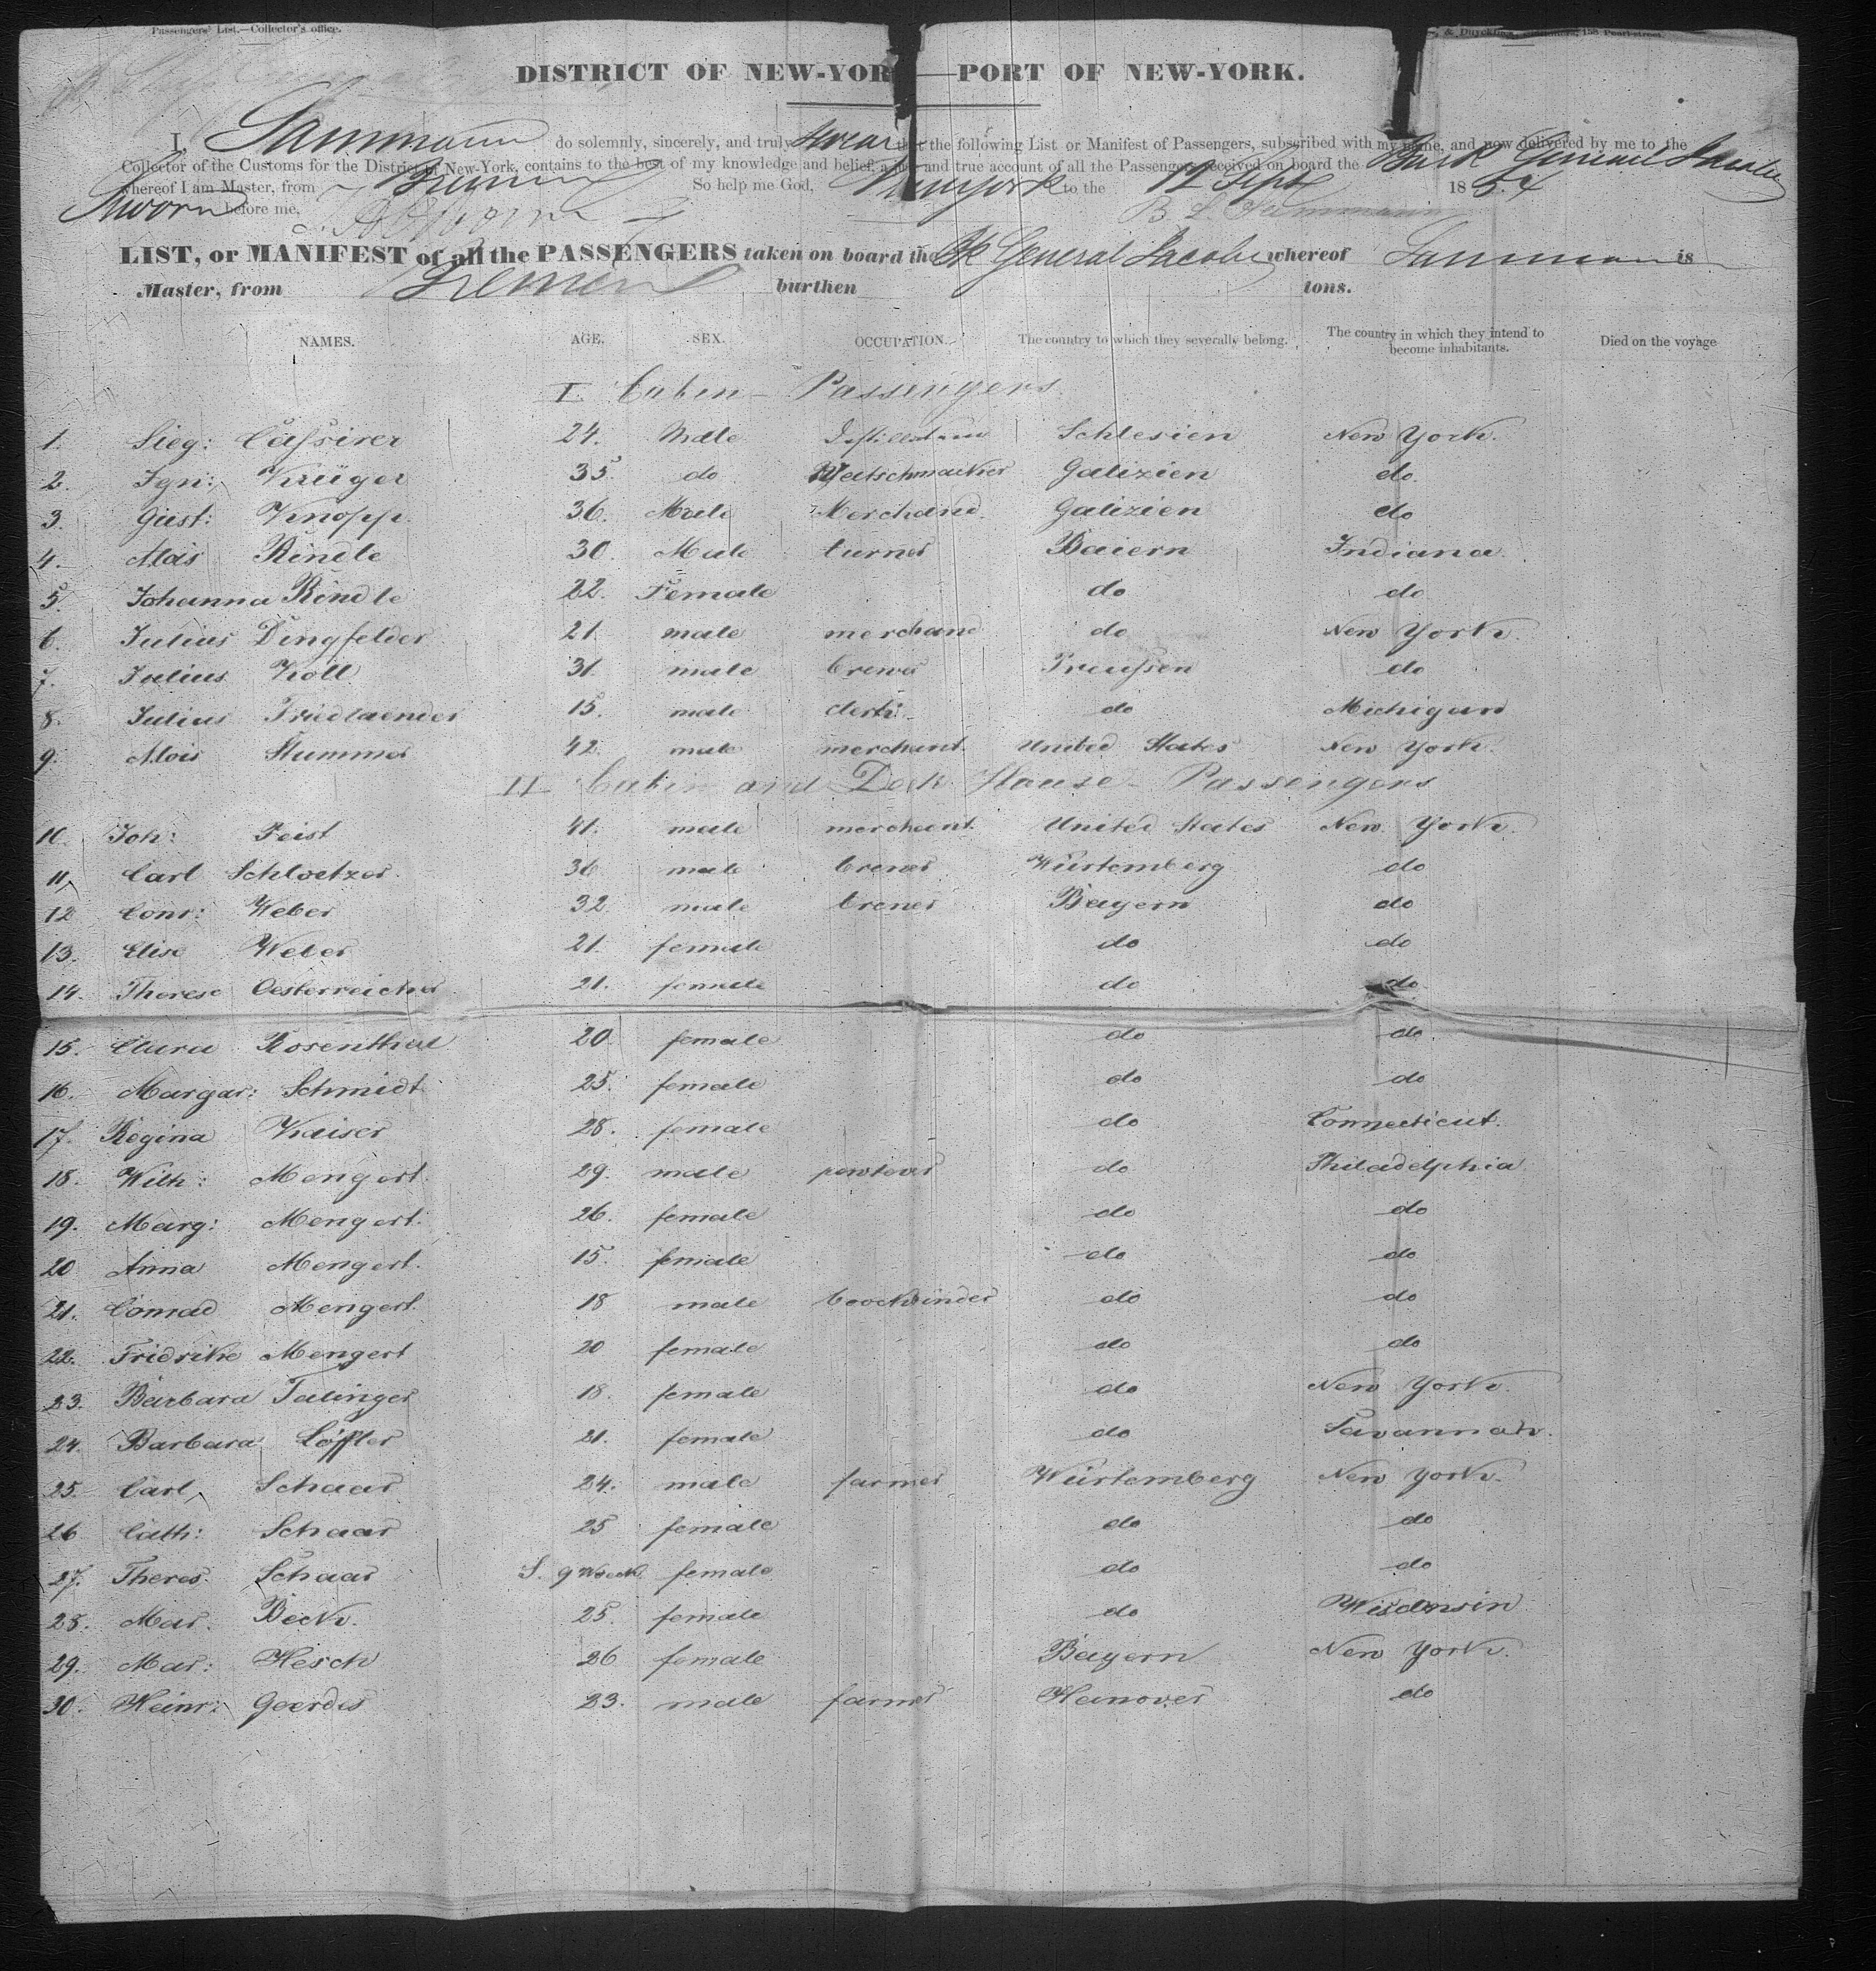 Passengers' List.—Collector's office.
& Duyckinck, 158 Pearl-street.
DISTRICT OF NEW-YOR — PORT OF NEW-YORK.
I, do solemnly, sincerely, and truly swear that the following List or Manifest of Passengers, subscribed with my name, and now delivered by me to the
Collector of the Customs for the District of New-York, contains to the best of my knowledge and belief, a just and true account of all the Passengers received on board the Bark General Jacobi
whereof I am Master, from Bremen So help me God,
Sworn before me, New York to the 12 Sept 1854
LIST, or MANIFEST of all the PASSENGERS taken on board the Bk General Jacobi whereof is
Master, from Bremen burthen tons.
NAMES. AGE. SEX. OCCUPATION. The country to which they severally belong. The country in which they intend to become inhabitants. Died on the voyage
I. Cabin - Passengers
1. Sieg: Cassirer 24. Male Schlesien New York.
2. Ign: Krüger 35. do Watschmacker Galizien do.
3. Gust: Knopp. 36. Male Merchand. Galizien do
4. Alois Rindle 30. Male turner Baiern Indiana
5. Johanna Rindle 22. Female do do
6. Julius Dingfelder 21. male merchand do New York.
7. Julius Köll 31. male brewer Preussen do
8. Julius Friedlaender 15. male clerk. do Michigan
9. Alois Stummer 42. male merchant. United States New York.
II Cabin and Deck House - Passengers
10. Joh: Feist 41. male merchant. United States New York.
11, Carl Schloetzer. 36 male brewer Würtemberg do
12 Conr: Weber 32 male brewer Bayern do
13. Elise Weber 21. female do do
14. Therese Oesterreicher 21. female do do
15. Clara Rosenthal 20 female do do
16. Margar: Schmidt 25. female do do
17. Regina Kaiser 28. female do Connecticut.
18. Wilh: Mengert. 29. male do Philadelphia
19. Marg: Mengert. 26. female do do
20 Anna Mengert. 15. female do do
21. Conrad Mengert. 18 male boockbinder do do
22. Fridrike Mengert 20 female do do
23. Barbara Talinger 18. female do New York.
24. Barbara Löffler 21. female do Savannah.
25. Carl Schaar 24. male farmer Würtemberg New York.
26 Cath: Schaar 25 female do do
27. Theres. Schaar S. 9 Week. female do do
28. Mar. Beck. 25. female do Wisconsin
29. Mar: Hesch 26 female Bayern New York.
30. Heinr: Geerdes 23. male farmer Hanover do